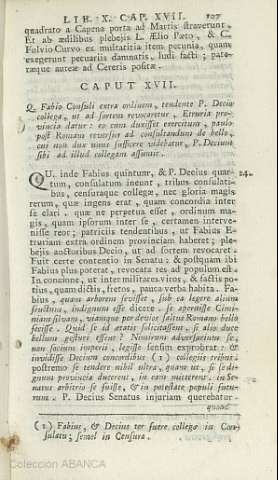 LIB. X. CAP. XVII. 107
quadrato a Capena porta ad Martis straverunt.
Et ab ædilibus plebejis L. Ælio Pæto, & C.
Fulvio Curvo ex multatitia item pecunia, quam
exegerunt pecuariis damnatis, ludi facti; pate-
ræque aureæ ad Cereris positæ.
CAPUT XVII.
Q. Fabio Consuli extra ordinem, tendente P. Decio
collega, ut ad sortem revocaretur, Etruria pro-
vincia datur: eo cum duxisset exercitum, paulo
post Romam reversus ad consultandum de bello,
cui non duæ videbatur, P. Decium
sibi ad illud collegam assumit.
QU. inde Fabius quintum, & P. Decius quar- 24.
tum, consulatum ineunt, tribus consulati-
bus, censuraque collegæ, nec gloria magis
rerum, quæ ingens erat, quam concordia inter
se clari. quæ ne perpetua esset, ordinum ma-
gis, quam ipsorum inter se, certamen interve-
nisse reor; patriciis tendentibus, ut Fabius E-
truriam extra ordinem provinciam haberet; ple-
bejis auctoribus Decio, ut ad sortem revocaret.
Fuit certe contentio in Senatu: & postquam ibi
Fabius plus poterat, revocata res ad populum est.
In concione, ut inter militares viros, & factis po-
tius, quam dictis, fretos, pauca verba habita. Fa-
bius, quam arborem sevisset, sub ea legere alium
fructum, indignum esse dicere. se aperuisse Cimi-
niam silvam, viamque per devios saltus Romano bello
fecisse. Quid se id ætatis solicitassent, si alio duce
bellum gesturi essent? Nimirum adversarium se,
non socium imperii, legisse sensim exprobrat: &
invidisse Decium concordibus (1) collegiis tribus.
postremo se tendere nihil ultra, quam ut, si se di-
gnum provincia ducerent, in eam mitterent. in Se-
natus arbitrio se fuisse, & in potestate populi futu-
rum. P. Decius Senatus injuriam querebatur.
quoad
(1) Fabius, & Decius ter fuere collegæ in Con-
sulatu; semel in Censura.
Colección ABANCA